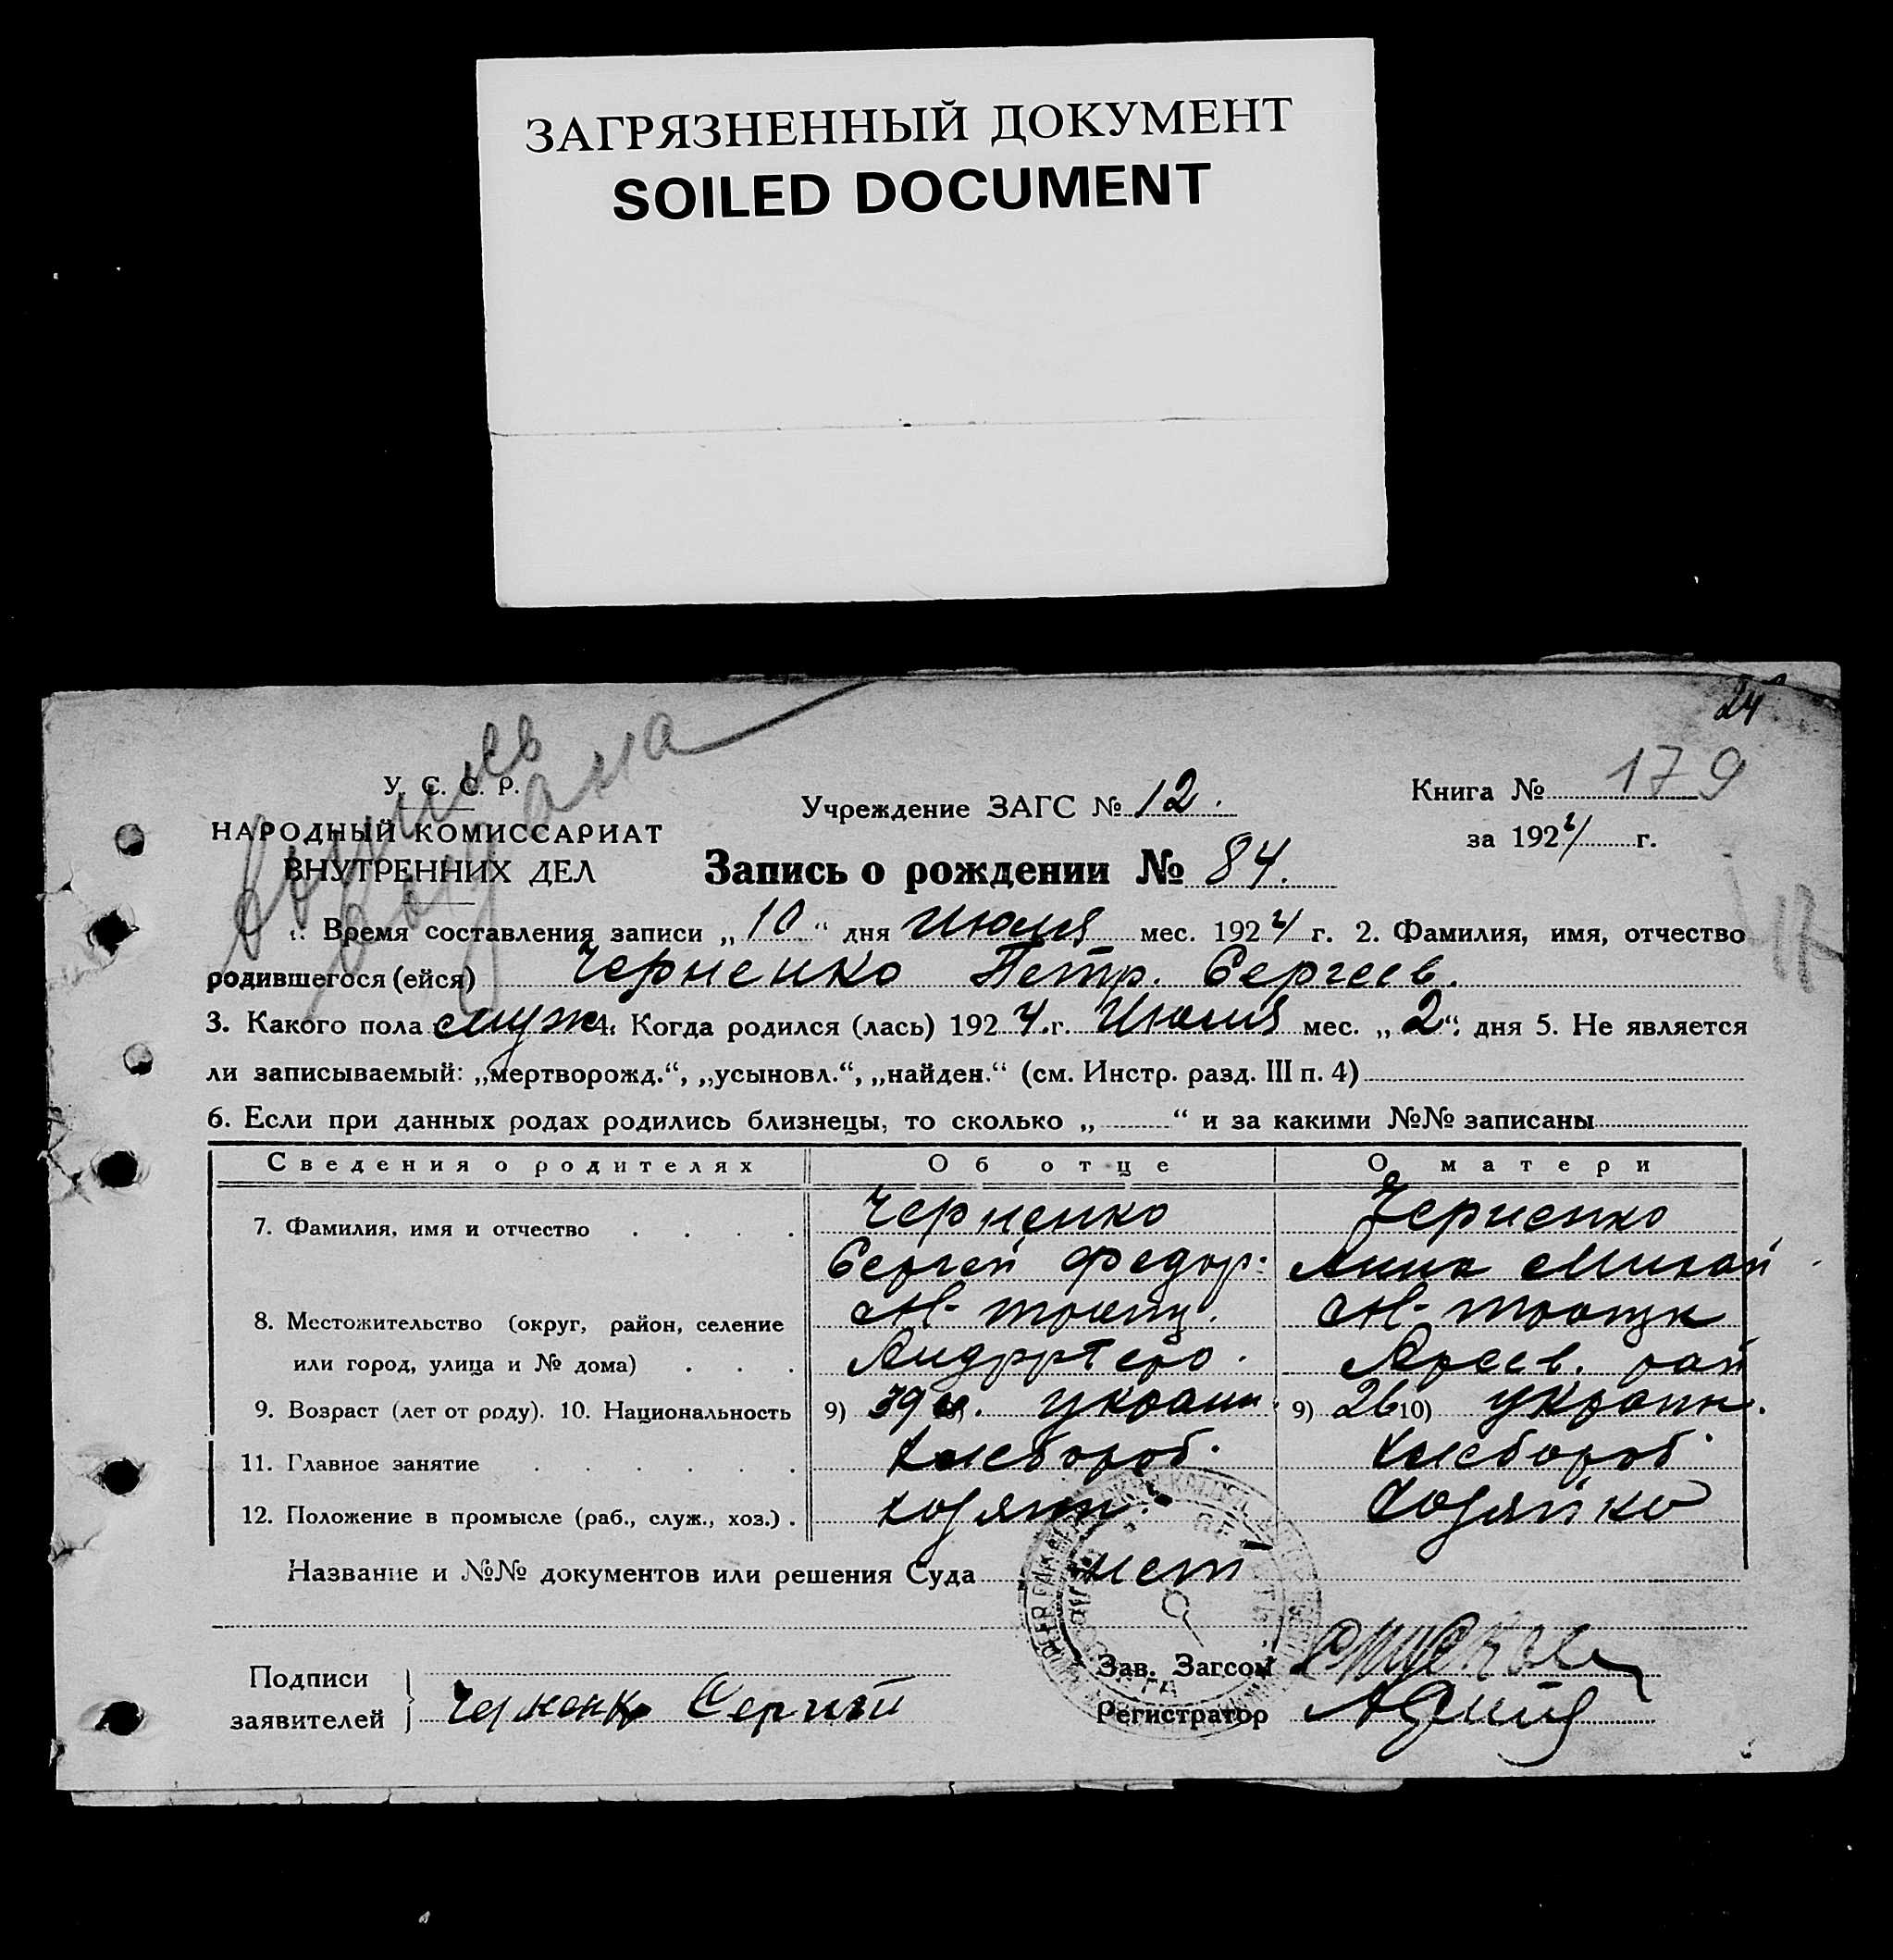 ЗАГРЯЗНЕННЫЙ ДОКУМЕНТ
SOILED DOCUMENT
24
У. С. С. Р.
НАРОДНЫЙ КОМИССАРИАТ
ВНУТРЕННИХ ДЕЛ
Учреждение ЗАГС № 12.
Книга № 179
за 1924 г.
Запись о рождении № 84.
1. Время составления записи „10“ дня Июля мес. 1924 г. 2. Фамилия, имя, отчество
родившегося (ейся) Черненко Петр. Сергеев.
3. Какого пола муж 4. Когда родился (лась) 1924.г. Июля мес. „2“ дня 5. Не является
ли записываемый: „мертворожд.“, „усыновл.“, „найден.“ (см. Инстр. разд. III п. 4)
6. Если при данных родах родились близнецы, то сколько „ “ и за какими №№ записаны
Сведения о родителях Об отце О матери
7. Фамилия, имя и отчество Черненко Черненко
Сергей Федор. Анна Михай
8. Местожительство (округ, район, селение М-троиц. М-троицк
или город, улица и № дома)
9. Возраст (лет от роду). 10. Национальность 9) 39 украин. 9) 26 10) украин.
11. Главное занятие Хлебороб. Хлебороб.
12. Положение в промысле (раб., служ., хоз.) . хозяин. Хозяйка
Название и №№ документов или решения Суда нет
Подписи
заявителей Черненко Сергий
Зав. Загсом
Регистратор